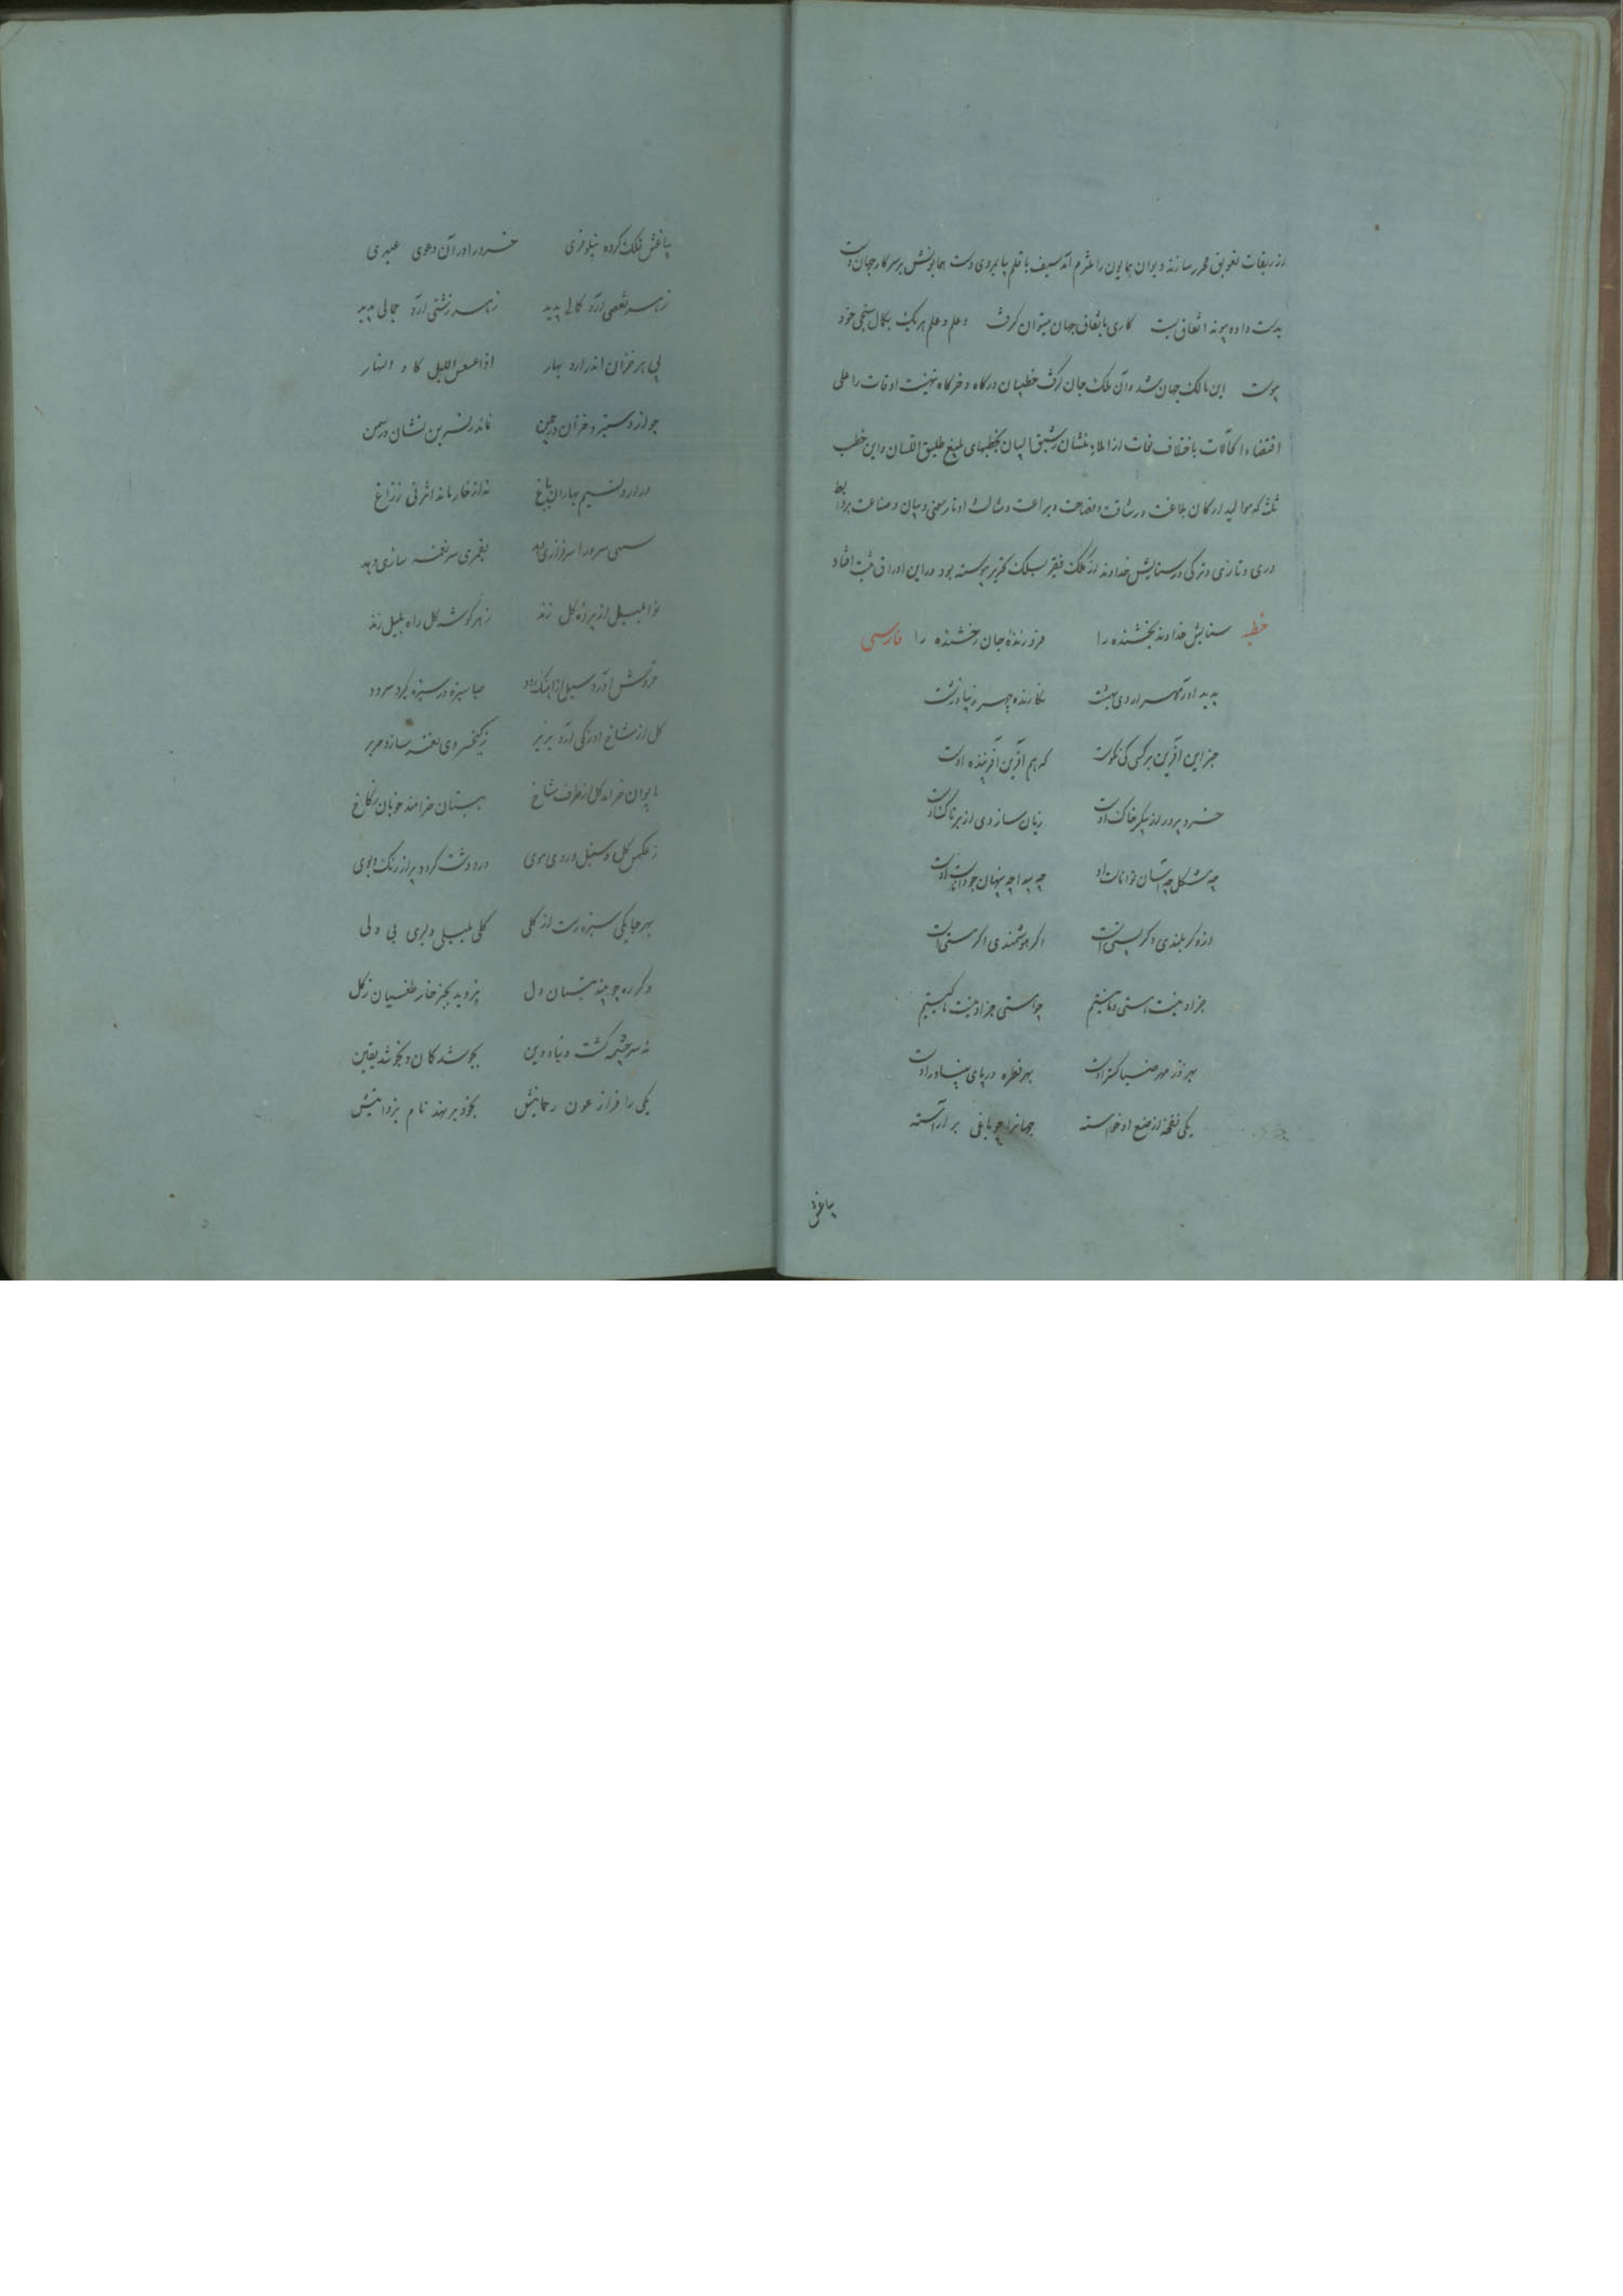 از ربقات تعویق محرر سازند دیوان همایون را ملتزم آمد سیف با قلم پایمردی دست همایونش بر سر کار جهان دست
بدست داده پیوند اتفاق بست کاری باتفاق جهان میتوان گرفت و علم و علم هر یک بکمال سنجی خود
پیوست این مالک جهان شد و آن ملک جان گرفت خطیبان درگاه و خرگاه تهنیت اوقات را علی
اقتضاء الحالات باختلاف لغات از املاء منشیان رشیق البیان بخطبهای بلیغ طلیق اللسان و این خطب
ثلثه که موالید ارکان بلاغت و رشاقت و فصاحت و براعت و مثالث اوتار معنی و بیان و صناعت بر روابط
دری و تازی و ترکی در ستایش خداوند از کلک فقیر بسلک تحریر پیوسته بود در این اوراق ثبت افتاد
خطبه ستایش خداوند بخشنده را فروزندهٔ جان رخشنده را فارسی
پدید آور مهر اردی بهشت نگارنده چهر زیبا و زشت
جز این آفرین بر کسی کی نکوست که هم آفرین آفریننده اوست
خرد پرور از پیکر خاک اوست زبان ساز وی از بر تاک اوست
چه مشکل چه آسان توانا است او چه پیدا چه پنهان چو دانا است اوست
ازو گر بلندی و گر پستی است اگر هوشمندی اگر مستی است
جز او نیست هستی و ما نیستیم چو هستی جز او نیست ما کیستیم
بهر ذره مهر ضیا گستر اوست بهر قطره دریای پهناور اوست
یکی نفخه از صنع او خواسته جهانرا چو باغی بر آراسته
بباغش
بباغش فلک کرده نیلوفری خرد را در آن دعوی عبهری
ز هر نقصی آرد کمالی پدید ز هر زشتی آرد جمالی پدید
پی هر خزان اندر آرد بهار اذا عسعس اللیل کاد النهار
چو آرد ستیزد خزان در چمن نماند ز نسرین نشان و ز سمن
در آرد نسیم بهاران بباغ نه از خار ماند اثر نی ز زاغ
سهی سرو را سرفرازی دهد بقمری سر نغمه سازی دهد
نوا بلبل از پرده گل زند ز هر گوشه گل راه بلبل زند
خروش آورد سیل از آهنگ رود صبا سبزه در سبزه گیرد سرود
گل از شاخ اورنگی آرد بزیر ز کیخسروی نغمه سازد هزیر
بایوان خرامد گل از طرف شاخ ببستان خرامند خوبان ز کاخ
ز عکس گل و سنبل و روی و موی در و دشت گردد پر از رنگ و بوی
بهر جا یکی سبزه رست از گلی گلی بلبلی دلبری بی دلی
دگر ره چو بیند بستان دل نروید بجز خار طغیان ز گل
نه سر چشمه گشت دنیا و دین بجو شد گمان و بجو شد یقین
یکی را فراز عون رحمانیش بخود بر نهد نام یزدانیش